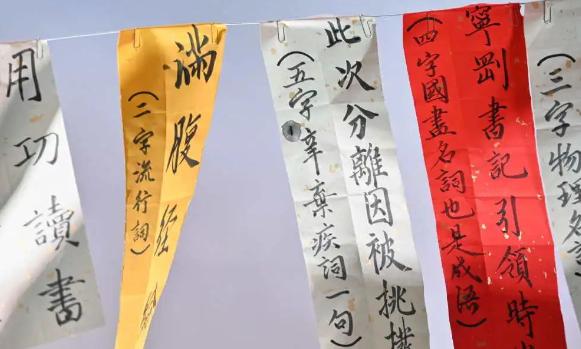 (三字物理名
寧剛書記引領時
(四字國畫名詞也是成語)
此次分離因被挑
(五字辛棄疾詞一句)
滿腹經綸
(二字流行詞)
用功讀書